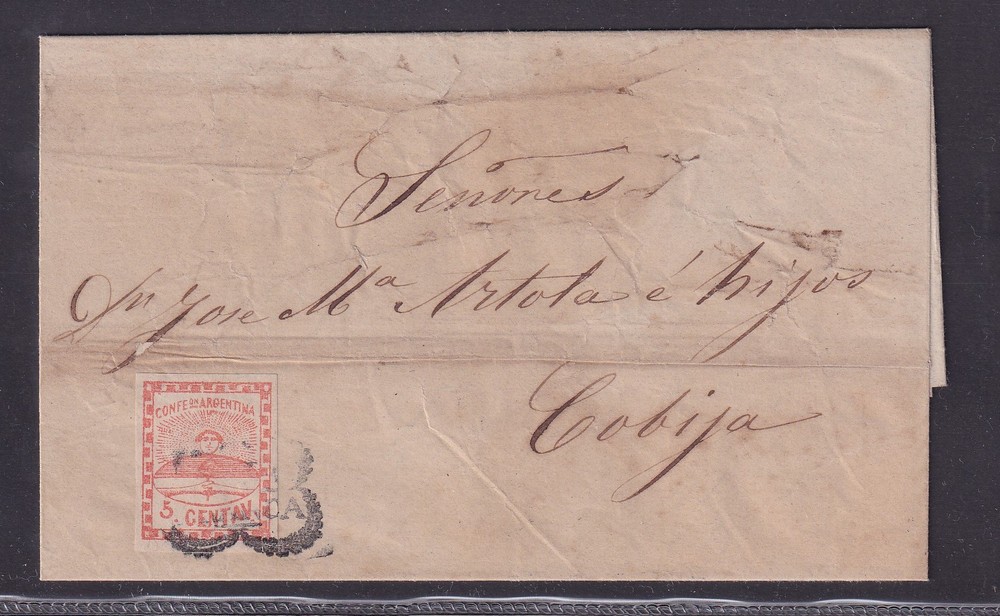 Señores
Dn Jose Ma Artola é hijos
Cobija
CONFEON ARGENTINA
5 CENTAV.